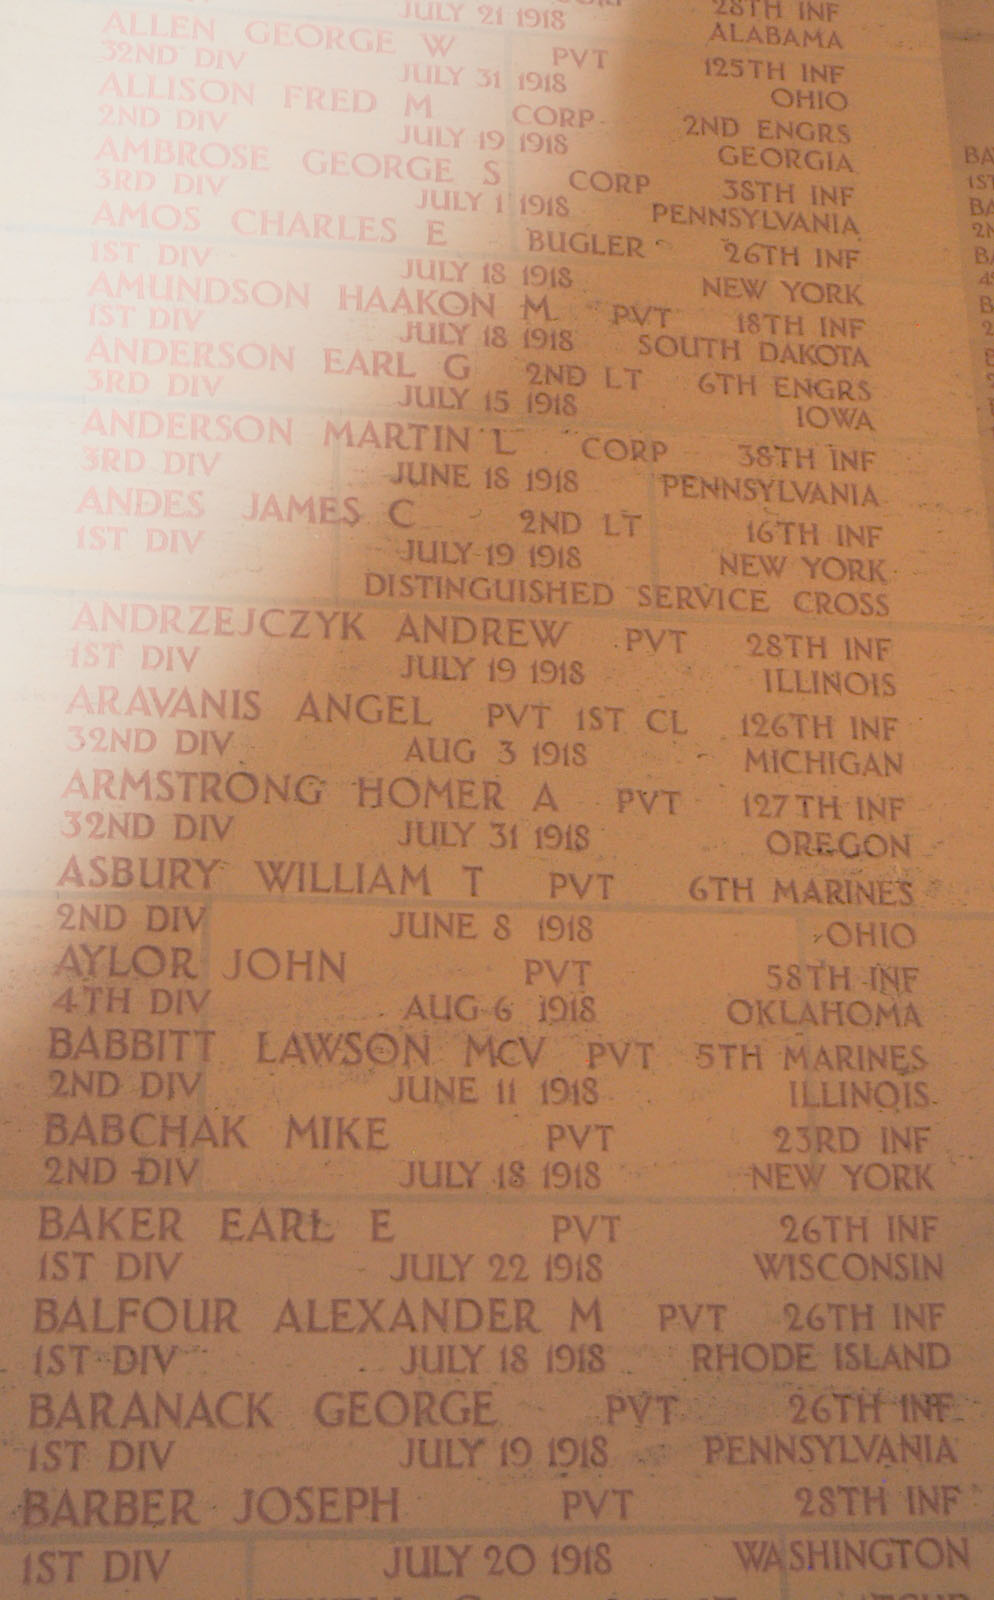 JULY 21 1918 28TH INF
ALABAMA
ALLEN GEORGE W PVT 125TH INF
32ND DIV JULY 31 1918 OHIO
ALLISON FRED M CORP 2ND ENGRS
2ND DIV JULY 19 1918 GEORGIA
AMBROSE GEORGE S CORP 38TH INF
3RD DIV JULY 1 1918 PENNSYLVANIA
AMOS CHARLES E BUGLER 26TH INF
1ST DIV JULY 18 1918 NEW YORK
AMUNDSON HAAKON M PVT 18TH INF
1ST DIV JULY 18 1918 SOUTH DAKOTA
ANDERSON EARL G 2ND LT 6TH ENGRS
3RD DIV JULY 15 1918 IOWA
ANDERSON MARTIN L CORP 38TH INF
3RD DIV JUNE 18 1918 PENNSYLVANIA
ANDES JAMES C 2ND LT 16TH INF
1ST DIV JULY 19 1918 NEW YORK
DISTINGUISHED SERVICE CROSS
ANDRZEJCZYK ANDREW PVT 28TH INF
1ST DIV JULY 19 1918 ILLINOIS
ARAVANIS ANGEL PVT 1ST CL 126TH INF
32ND DIV AUG 3 1918 MICHIGAN
ARMSTRONG HOMER A PVT 127TH INF
32ND DIV JULY 31 1918 OREGON
ASBURY WILLIAM T PVT 6TH MARINES
2ND DIV JUNE 8 1918 OHIO
AYLOR JOHN PVT 58TH INF
4TH DIV AUG 6 1918 OKLAHOMA
BABBITT LAWSON McV PVT 5TH MARINES
2ND DIV JUNE 11 1918 ILLINOIS
BABCHAK MIKE PVT 23RD INF
2ND DIV JULY 18 1918 NEW YORK
BAKER EARL E PVT 26TH INF
1ST DIV JULY 22 1918 WISCONSIN
BALFOUR ALEXANDER M PVT 26TH INF
1ST DIV JULY 18 1918 RHODE ISLAND
BARANACK GEORGE PVT 26TH INF
1ST DIV JULY 19 1918 PENNSYLVANIA
BARBER JOSEPH PVT 28TH INF
1ST DIV JULY 20 1918 WASHINGTON